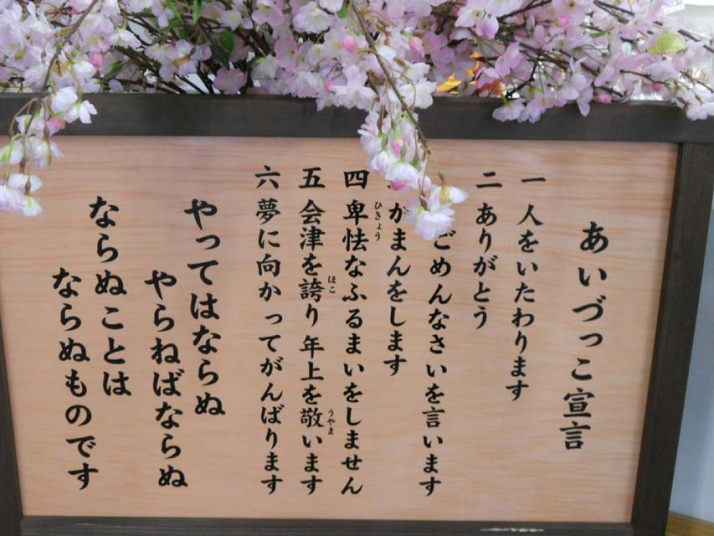 あいづっこ宣言
一 人をいたわります
二 ありがとう
ごめんなさいを言います
がまんをします
四 卑怯なふるまいをしません
五 会津を誇り 年上を敬います
六 夢に向かってがんばります
やってはならぬ
やらねばならぬ
ならぬことは
ならぬものです